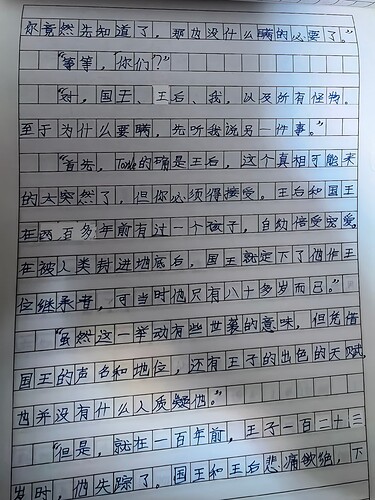 你竟然先知道了，那也没什么瞒的必要了。”
“等等，‘你们’？”
“对，国王、王后、我，以及所有怪物。
至于为什么要瞒，先听我说另一件事。”
“首先，Toriel的确是王后，这个真相可能来
的太突然了，但你必须得接受。王后和国王
在两百多年前有过一个孩子，自幼倍受宠爱，
在被人类封进地底后，国王就定下了他作王
位继承者，可当时他只有八十多岁而已。”
“虽然这一举动有些世袭的意味，但凭借
国王的声色和地位，还有王子的出色的天赋，
也并没有什么人质疑他。”
“但是，就在一百年前，王子一百二十三
岁时，他失踪了。国王和王后悲痛欲绝，下